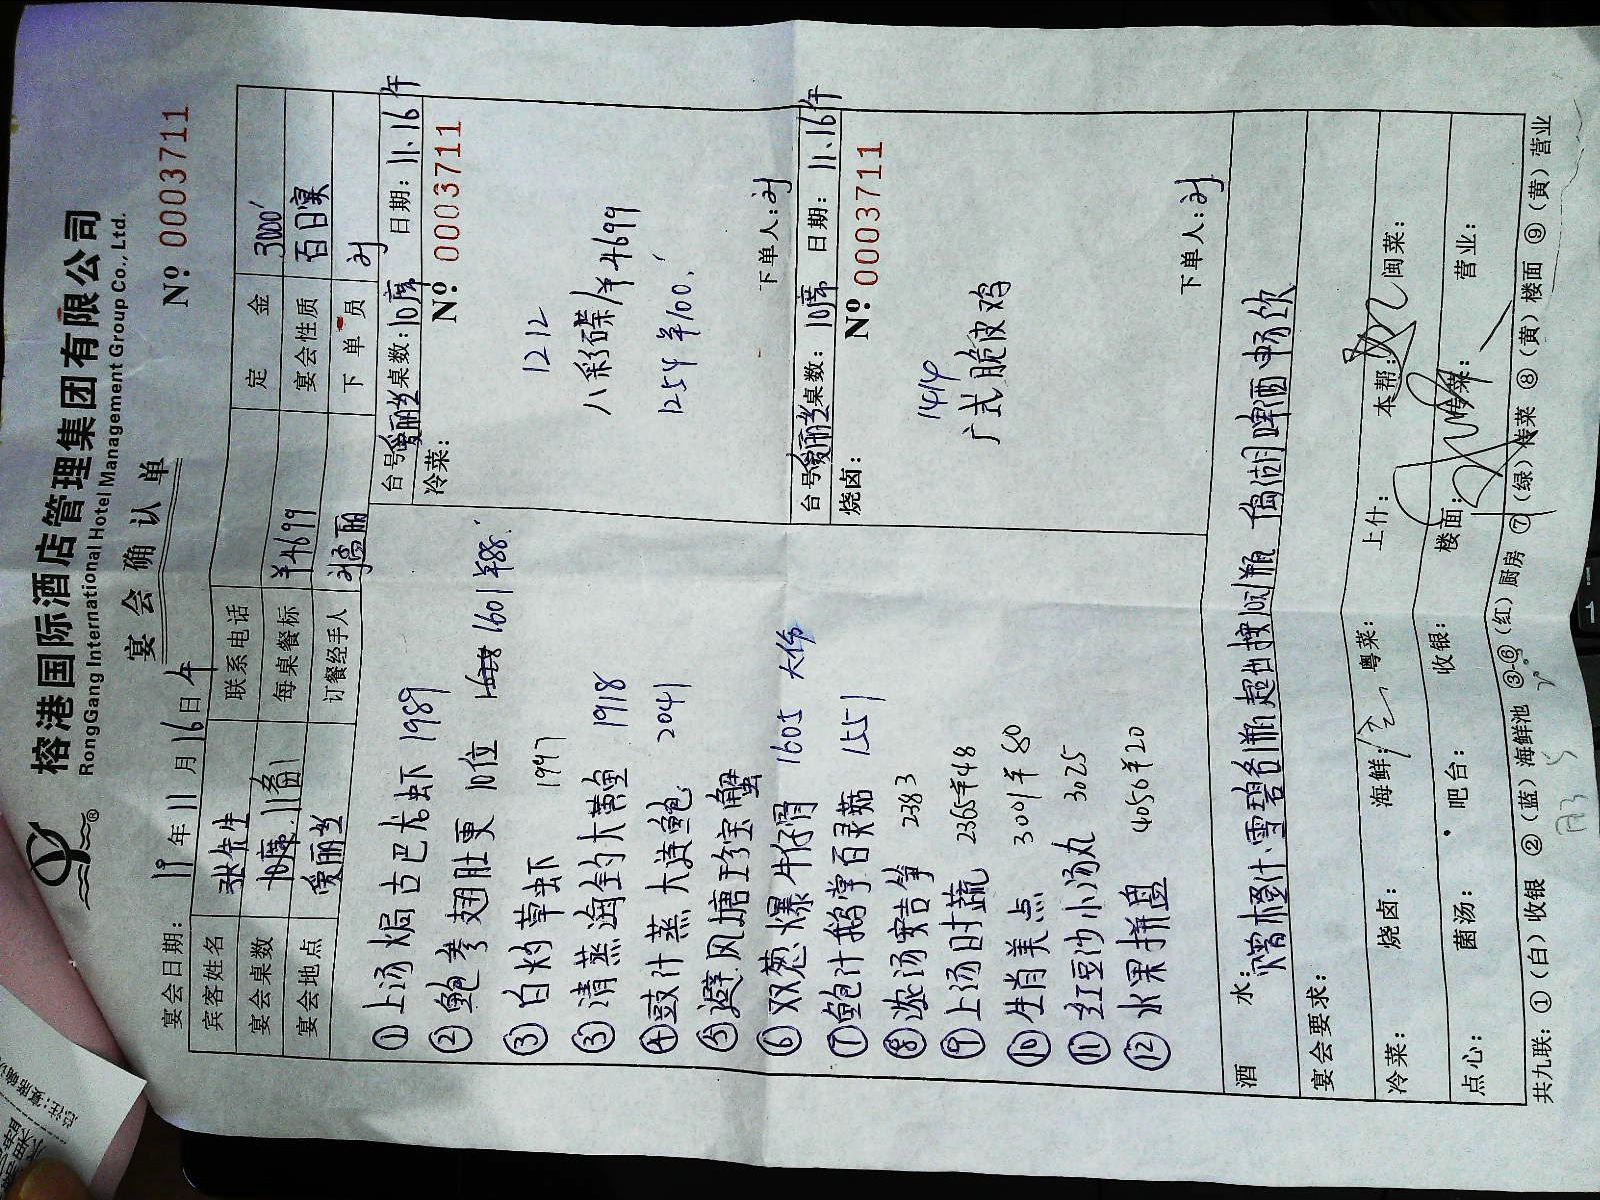 榕港国际酒店管理集团有限公司
RongGang International Hotel Management Group Co., Ltd.
宴会确认单
宴会日期: 19年11月16日午 Nº 0003711
宾客姓名 张先生 联系电话 定金 3000
宴会桌数 10席.11备1 每桌餐标 ¥4699 宴会性质 百日宴
宴会地点 爱丽丝 订餐经手人 下单员
①上汤焗古巴龙虾 1989
②鲍参翅肚更 10位 1601 ¥88
③白灼草虾 1997
③清蒸海钓大黄鱼 1918
④豉汁蒸大连鲍 2041
⑤避风塘珍宝蟹
⑥双葱爆牛仔骨 1605 大份
⑦鲍汁鹅掌百灵菇 1551
⑧浓汤 2383
⑨上汤时蔬 2365 ¥48
⑩生肖美点 3001 ¥80
⑪红豆沙小汤丸 3025
⑫水果拼盘 4056 ¥20
台号:爱丽丝 桌数:10席 日期:11.16午
冷菜: Nº 0003711
1212
八彩碟/¥4699
1254 ¥100
下单人:
台号:爱丽丝 桌数:10席 日期:11.16午
烧卤: Nº 0003711
1414
广式脆皮鸡
下单人:
酒水: 橙汁.雪碧各1瓶 超出按10元/瓶 啤酒畅饮
宴会要求:
冷菜: 烧卤: 海鲜: 粤菜: 上什: 本帮: 闽菜:
点心: 菌汤: 吧台: 收银: 楼面: 传菜: 营业:
共九联: ①(白)收银 ②(蓝)海鲜池 ③-⑥(红)厨房 ⑦(绿)传菜 ⑧(黄)楼面 ⑨(黄)营业